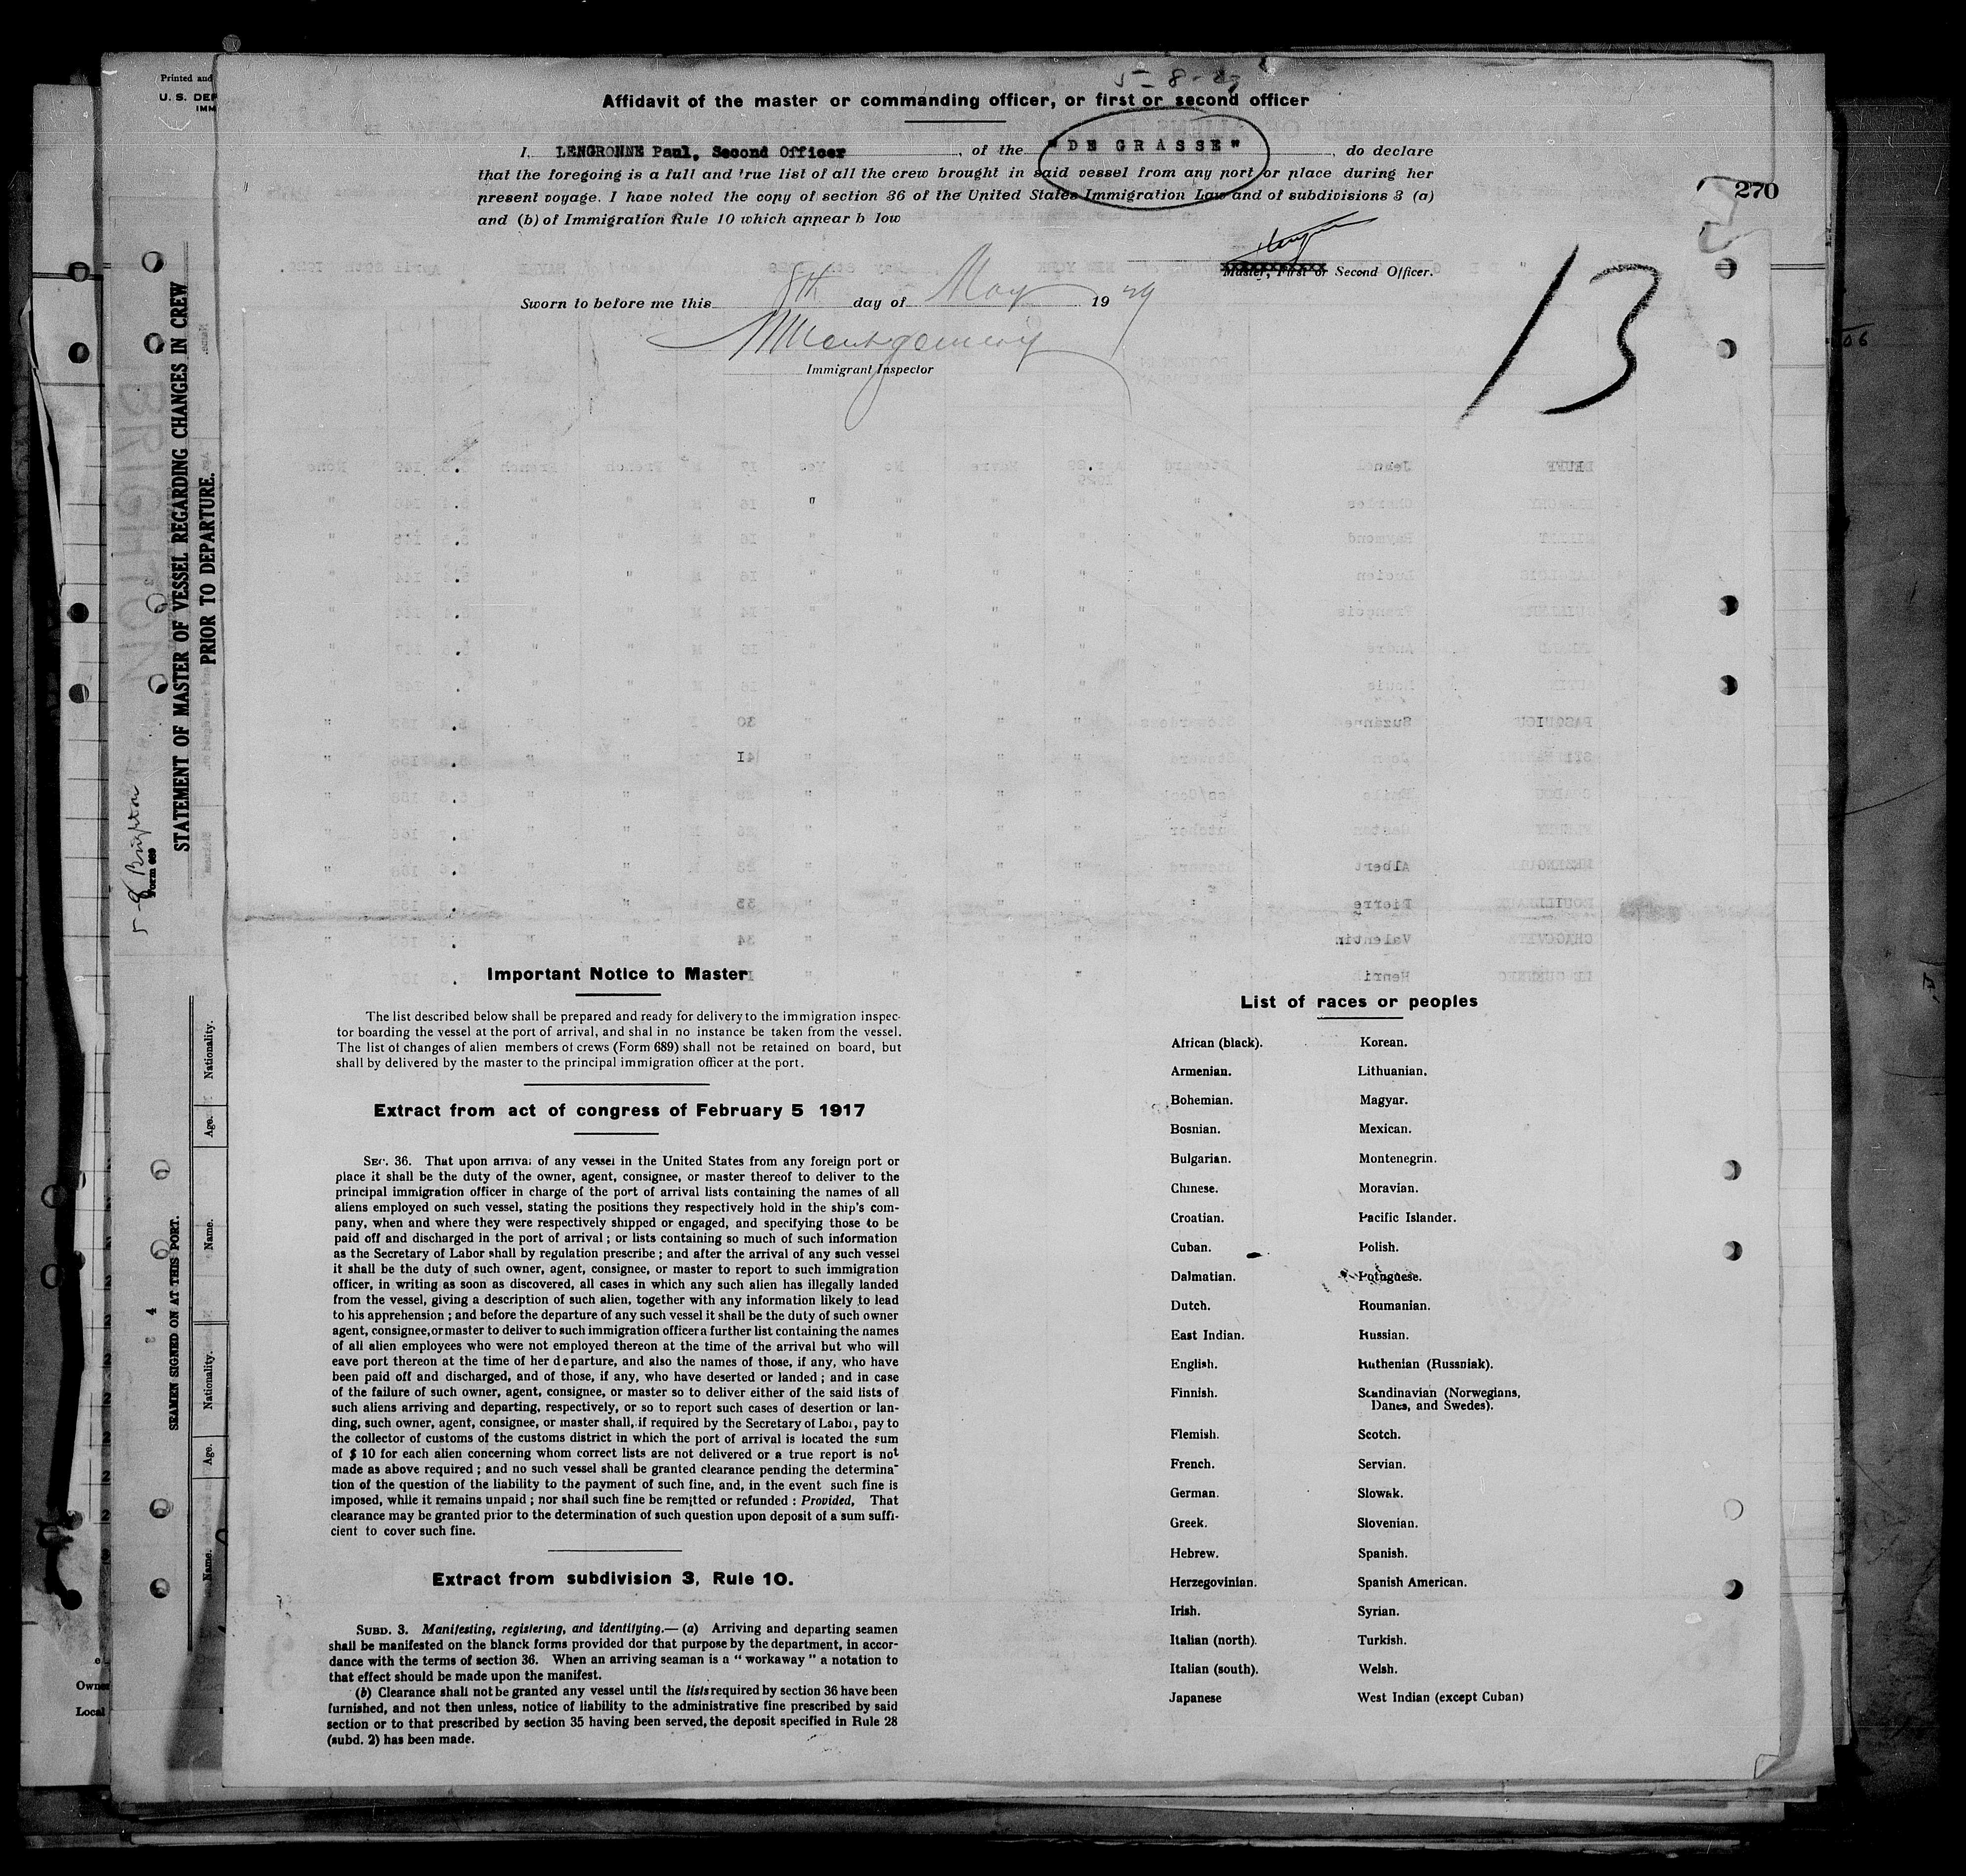 5-8-29
Affidavit of the master or commanding officer, or first or second officer
I, LENGRONNE Paul, Second Officer, of the "DE GRASSE", do declare
that the foregoing is a full and true list of all the crew brought in said vessel from any port or place during her
present voyage. I have noted the copy of section 36 of the United States Immigration Law and of subdivisions 3 (a)
and (b) of Immigration Rule 10 which appear b low
270
Master, First or Second Officer.
13
Sworn to before me this 8th day of May 1929
Montgomery
Immigrant Inspector
Important Notice to Master
The list described below shall be prepared and ready for delivery to the immigration inspec-
tor boarding the vessel at the port of arrival, and shal in no instance be taken from the vessel.
The list of changes of alien members of crews (Form 689) shall not be retained on board, but
shall by delivered by the master to the principal immigration officer at the port.
Extract from act of congress of February 5 1917
SEC. 36. That upon arrival of any vessel in the United States from any foreign port or
place it shall be the duty of the owner, agent, consignee, or master thereof to deliver to the
principal immigration officer in charge of the port of arrival lists containing the names of all
aliens employed on such vessel, stating the positions they respectively hold in the ship's com-
pany, when and where they were respectively shipped or engaged, and specifying those to be
paid off and discharged in the port of arrival ; or lists containing so much of such information
as the Secretary of Labor shall by regulation prescribe ; and after the arrival of any such vessel
it shall be the duty of such owner, agent, consignee, or master to report to such immigration
officer, in writing as soon as discovered, all cases in which any such alien has illegally landed
from the vessel, giving a description of such alien, together with any information likely to lead
to his apprehension ; and before the departure of any such vessel it shall be the duty of such owner
agent, consignee, or master to deliver to such immigration officer a further list containing the names
of all alien employees who were not employed thereon at the time of the arrival but who will
eave port thereon at the time of her departure, and also the names of those, if any, who have
been paid off and discharged, and of those, if any, who have deserted or landed ; and in case
of the failure of such owner, agent, consignee, or master so to deliver either of the said lists of
such aliens arriving and departing, respectively, or so to report such cases of desertion or lan-
ding, such owner, agent, consignee, or master shall, if required by the Secretary of Labor, pay to
the collector of customs of the customs district in which the port of arrival is located the sum
of $ 10 for each alien concerning whom correct lists are not delivered or a true report is not
made as above required ; and no such vessel shall be granted clearance pending the determina-
tion of the question of the liability to the payment of such fine, and, in the event such fine is
imposed, while it remains unpaid ; nor shall such fine be remitted or refunded : Provided, That
clearance may be granted prior to the determination of such question upon deposit of a sum suffi-
cient to cover such fine.
Extract from subdivision 3, Rule 10.
SUBD. 3. Manifesting, registering, and identifying.— (a) Arriving and departing seamen
shall be manifested on the blanck forms provided dor that purpose by the department, in accor-
dance with the terms of section 36. When an arriving seaman is a " workaway " a notation to
that effect should be made upon the manifest.
(b) Clearance shall not be granted any vessel until the lists required by section 36 have been
furnished, and not then unless, notice of liability to the administrative fine prescribed by said
section or to that prescribed by section 35 having been served, the deposit specified in Rule 28
(subd. 2) has been made.
List of races or peoples
African (black). Korean.
Armenian. Lithuanian.
Bohemian. Magyar.
Bosnian. Mexican.
Bulgarian. Montenegrin.
Chinese. Moravian.
Croatian. Pacific Islander.
Cuban. Polish.
Dalmatian. Potuguese.
Dutch. Roumanian.
East Indian. Russian.
English. Ruthenian (Russniak).
Finnish. Scandinavian (Norwegians,
Danes, and Swedes).
Flemish. Scotch.
French. Servian.
German. Slowak.
Greek. Slovenian.
Hebrew. Spanish.
Herzegovinian. Spanish American.
Irish. Syrian.
Italian (north). Turkish.
Italian (south). Welsh.
Japanese West Indian (except Cuban)
Printed and
U. S. DEP
IMM
STATEMENT OF MASTER OF VESSEL REGARDING CHANGES IN CREW
PRIOR TO DEPARTURE.
Form 689
5-8 Brighton
SEAMEN SIGNED ON AT THIS PORT.
Name. Age. Nationality. Name. Age. Nationality.
Owne
Local